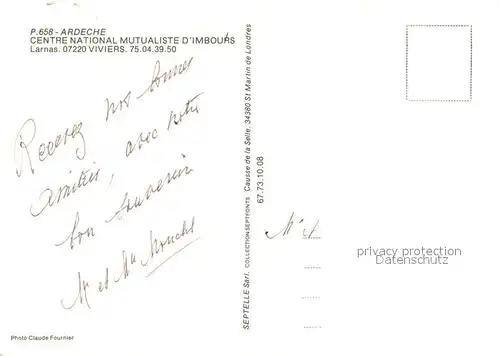 P.658 - ARDECHE
CENTRE NATIONAL MUTUALISTE D'IMBOURS
Larnas. 07220 VIVIERS. 75.04.39.50
Recevez nos bonnes
amitiés, avec notre
bon souvenir
Mr et Mme
Photo Claude Fournier
SEPTELLE Sarl. COLLECTION SEPTFONTS Causse de la Selle. 34380 St Martin de Londres
67.73.10.08
privacy protection
Datenschutz